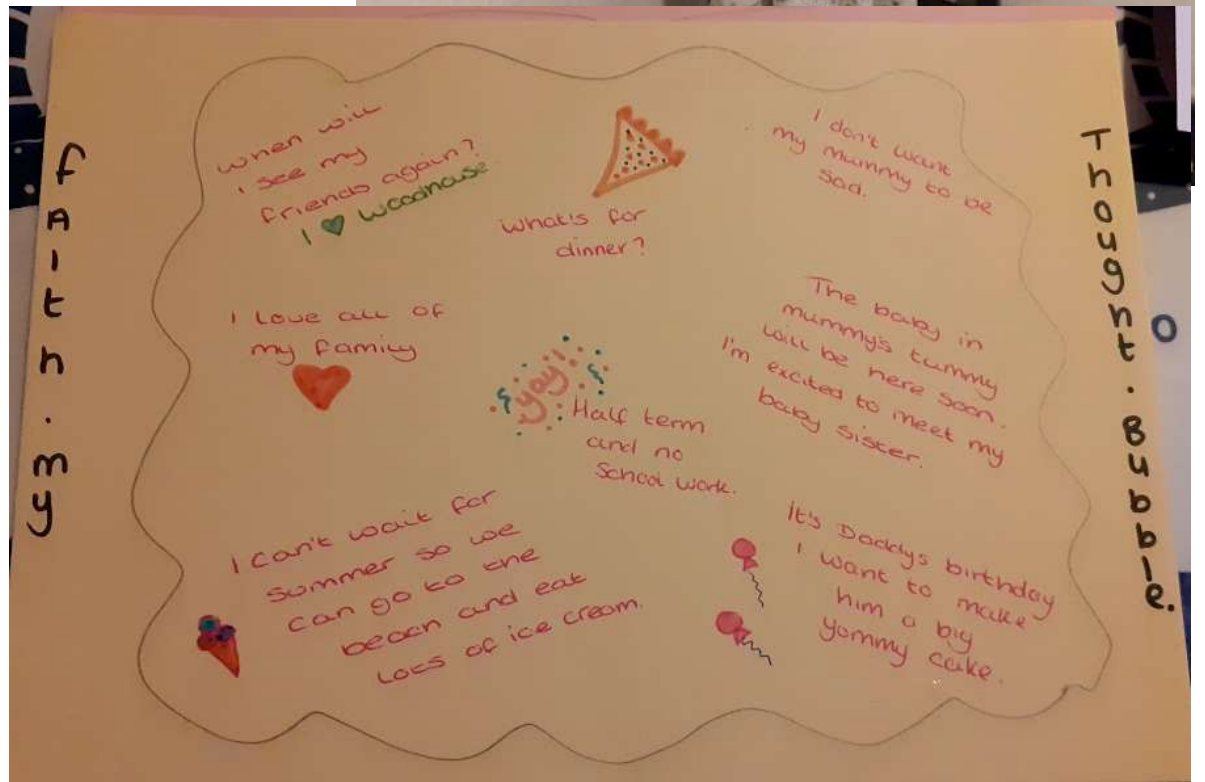 Faith.my
when will
I see my
friends again?
I ♥ Woodhouse
What's for
dinner?
I don't want
my mummy to be
sad.
I love all of
my family
yay!
Half term
and no
School work.
The baby in
mummy's tummy
will be here soon.
I'm excited to meet my
baby sister.
I can't wait for
summer so we
can go to the
beach and eat
lots of ice cream.
It's Daddys birthday
I want to make
him a big
yommy cake.
Thought.Bubble.